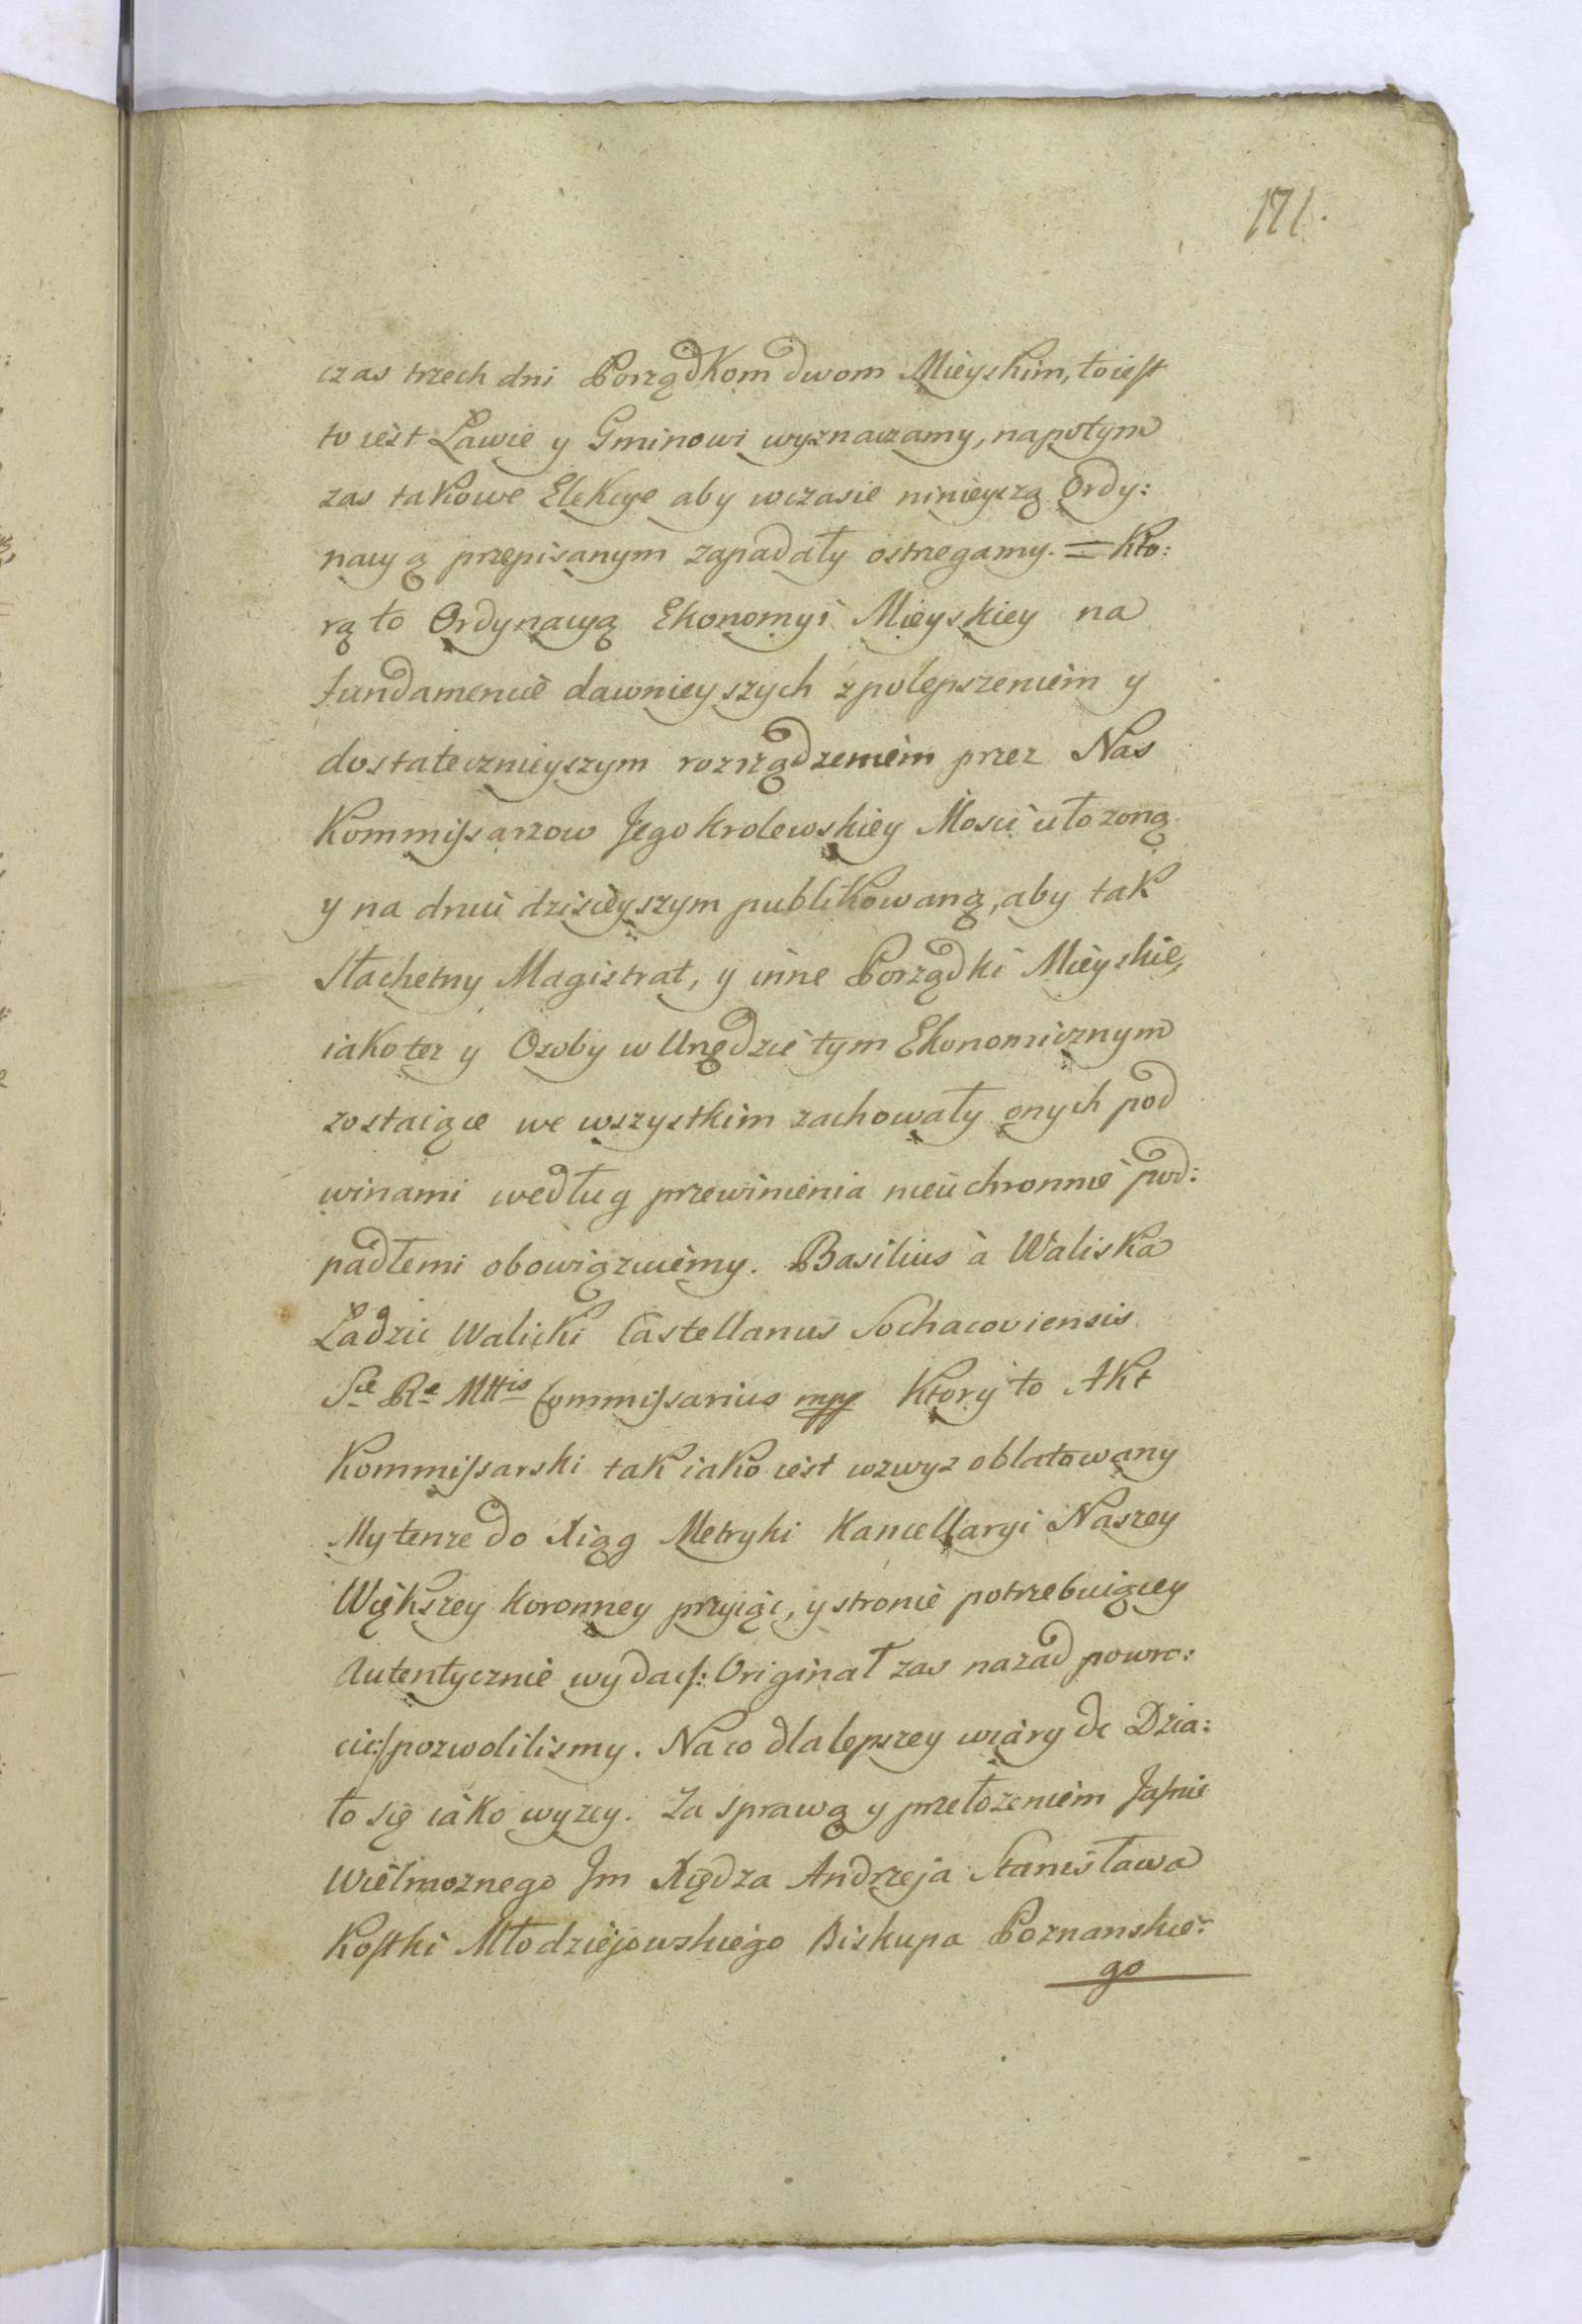 171.
czas trzech dni Porządkom dwom Mieyskim, to iest
to iest Ławie y Gminowi wyznaczamy, napotym
zas takowe Elekcye aby wczasie ninieyszą Ordy:
nacyą przepisanym zapadały ostrzegamy. = Kto:
rą to Ordynacyą Ekonomyi Mieyskiey na
fundamencie dawnieyszych z polepszeniem y
dostatecznieyszym rozrządzeniem przez Nas
Kommissarzow Jego Krolewskiey Mosci ułozoną
y na dniu dzisieyszym publikowaną, aby tak
Slachetny Magistrat, y inne Porządki Mieyskie,
iako tez y Osoby w Urzędzie tym Ekonomicznym
zostaiące we wszystkim zachowały onych pod
winami według przewinienia nieuchronnie pod:
padłemi obowiązuiemy. Basilius à Waliska
Ladzic Walicki Castellanus Sochacoviensis
Sæ Ræ Mttis Commissarius mpp Ktory to Akt
Kommissarski tak iako iest wzwyz oblatowany
My tenze do Xiąg Metryki Kancellaryi Naszey
Większey Koronney przyiąc, y stronie potrzebuiącey
Autentycznie wydac/: Originał zas nazad powro:
cic:/ pozwolilismy. Na co dla lepszey wiary dc Dzia:
ło się iako wyzey. Za sprawą y przełozeniem Jasnie
Wielmoznego Jm Xiędza Andrzeja Stanisława
Kostki Młodziejowskiego Biskupa Poznanskie:
go